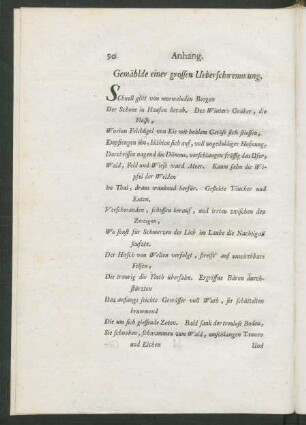 90 Anhang.
Gemählde einer grossen Ueberschwemmung.
Schnell glitt von murmelnden Bergen
Der Schnee in Haufen herab. Des Winters Gräber, die
Flüsse,
Worinn Felshügel von Eis mit hohlem Getöse sich stiessen,
Empfiengen ihn, blähten sich auf, voll ungedultiger Hofnung,
Durchrissen nagend die Dämme, verschlangen frässig das Ufer,
Wald, Feld und Wiese ward Meer. Kaum sahn die Wi-
pfel der Weiden
Im Thal, draus wankend herfür. Gefleckte Täucher und
Enten,
Verschwanden, schossen herauf, und irrten zwischen den
Zweigen,
Wo sonst für Schmerzen der Lieb im Laube die Nachtigall
seufzte.
Der Hirsch von Wellen verfolgt, streift' auf unwirthbare
Felsen,
Die traurig die Fluth übersahn. Ergriffne Bären durch-
stürzten
Das anfangs seichte Gewässer voll Wuth, sie schüttelten
brummend
Die um sich giessende Zoten. Bald sank der treulose Boden,
Sie schnoben, schwammen zum Wald, umschlangen Tannen
und Eichen
Und